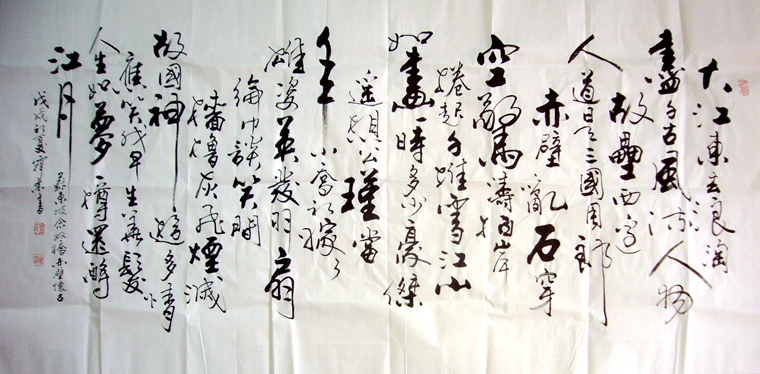 大江東去浪淘
盡千古風流人物
故壘西邊
人道是三國周郎
赤壁亂石穿
空驚濤拍岸
捲起千堆雪江山
如畫一時多少豪傑
遙想公瑾當
年小喬初嫁了
雄姿英發羽扇
綸巾談笑間
檣櫓灰飛煙滅
故國神遊多情
應笑我早生華髮
人生如夢樽還酹
江月
蘇東坡念奴嬌赤壁懷古
戊戌初夏書